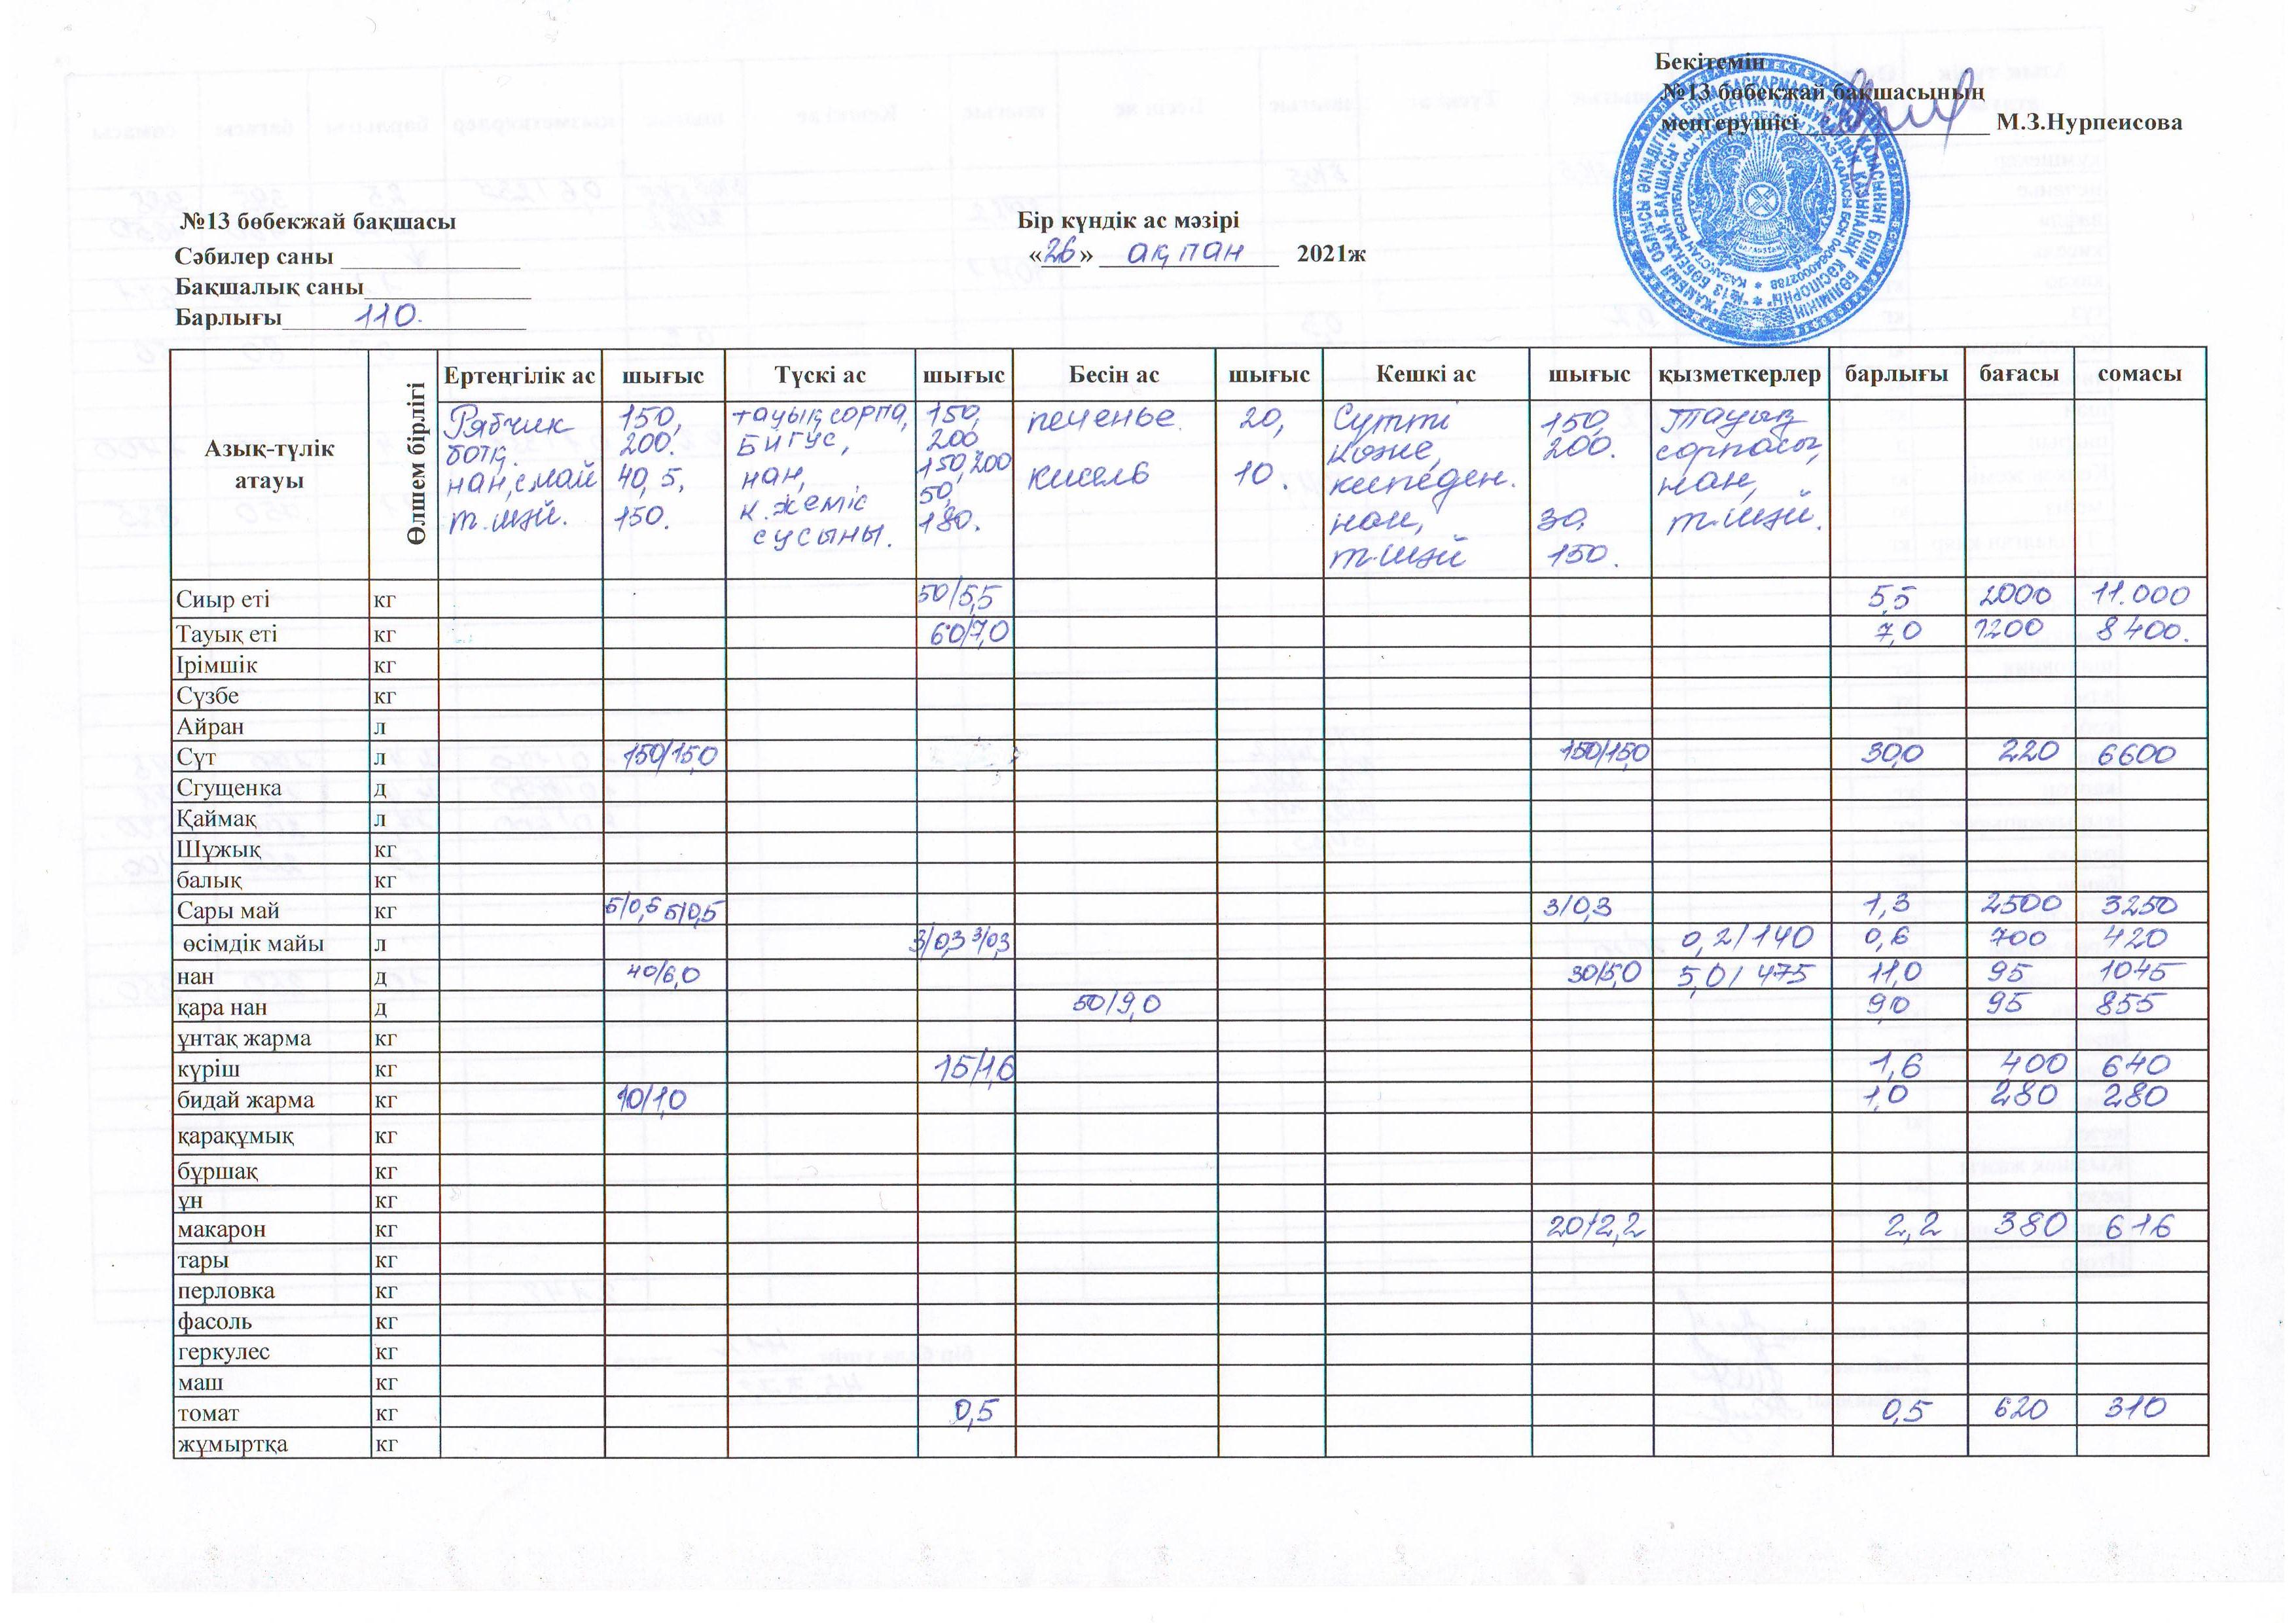 Бекітемін
№13 бөбекжай бақшасының
меңгерушісі______________ М.З.Нурпеисова
№13 бөбекжай бақшасы
Бір күндік ас мәзірі
Сәбилер саны ______________
«26» ақпан 2021ж
Бақшалық саны_____________
Барлығы 110.
Азық-түлік атауы Өлшем бірлігі Ертеңгілік ас шығыс Түскі ас шығыс Бесін ас шығыс Кешкі ас шығыс қызметкерлер барлығы бағасы сомасы
Рябчик 150, тауық сорпа, 150, печенье. 20, Сүтті 150, Тауық
ботқ. 200. Бигус, 200 көже, 200. сорпасы,
нан, с.май 40, 5, нан, 150,200 кисель 10. кеспеден. нан,
т.шәй. 150. к.жеміс 50, нан, 30, т.шәй.
сусыны. 180. т.шәй 150.
Сиыр еті кг 50/5,5 5,5 2000 11.000
Тауық еті кг 60/7,0 7,0 1200 8400.
Ірімшік кг
Сүзбе кг
Айран л
Сүт л 150/15,0 150/15,0 30,0 220 6600
Сгущенка д
Қаймақ л
Шұжық кг
балық кг
Сары май кг 5/0,5 5/0,5 3/0,3 1,3 2500 3250
өсімдік майы л 3/0,3 3/0,3 0,2/140 0,6 700 420
нан д 40/6,0 30/5,0 5,0/475 11,0 95 1045
қара нан д 50/9,0 9,0 95 855
ұнтақ жарма кг
күріш кг 15/1,6 1,6 400 640
бидай жарма кг 10/1,0 1,0 280 280
қарақұмық кг
бұршақ кг
ұн кг
макарон кг 20/2,2 2,2 380 616
тары кг
перловка кг
фасоль кг
геркулес кг
маш кг
томат кг 0,5 0,5 620 310
жұмыртқа кг